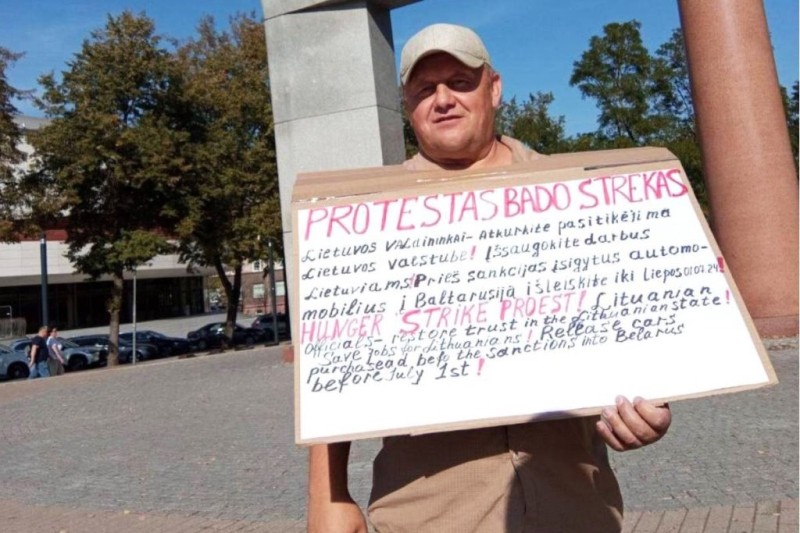 PROTESTAS BADO STREKAS
Lietuvos Valdininkai - Atkurkite pasitikėjima
Lietuvos valstube! Išsaugokite darbus
Lietuviams! Prieš sankcijas įsigytus automo-
mobilius į Baltarusiją išleiskite iki liepos 01 07 24!
HUNGER STRIKE PROEST! Lithuanian
Officials - restore trust in the Lithuanian state!
Save jobs for Lithuanians! Release cars
purchasead befo the sanctions into Belarus
before July 1st!